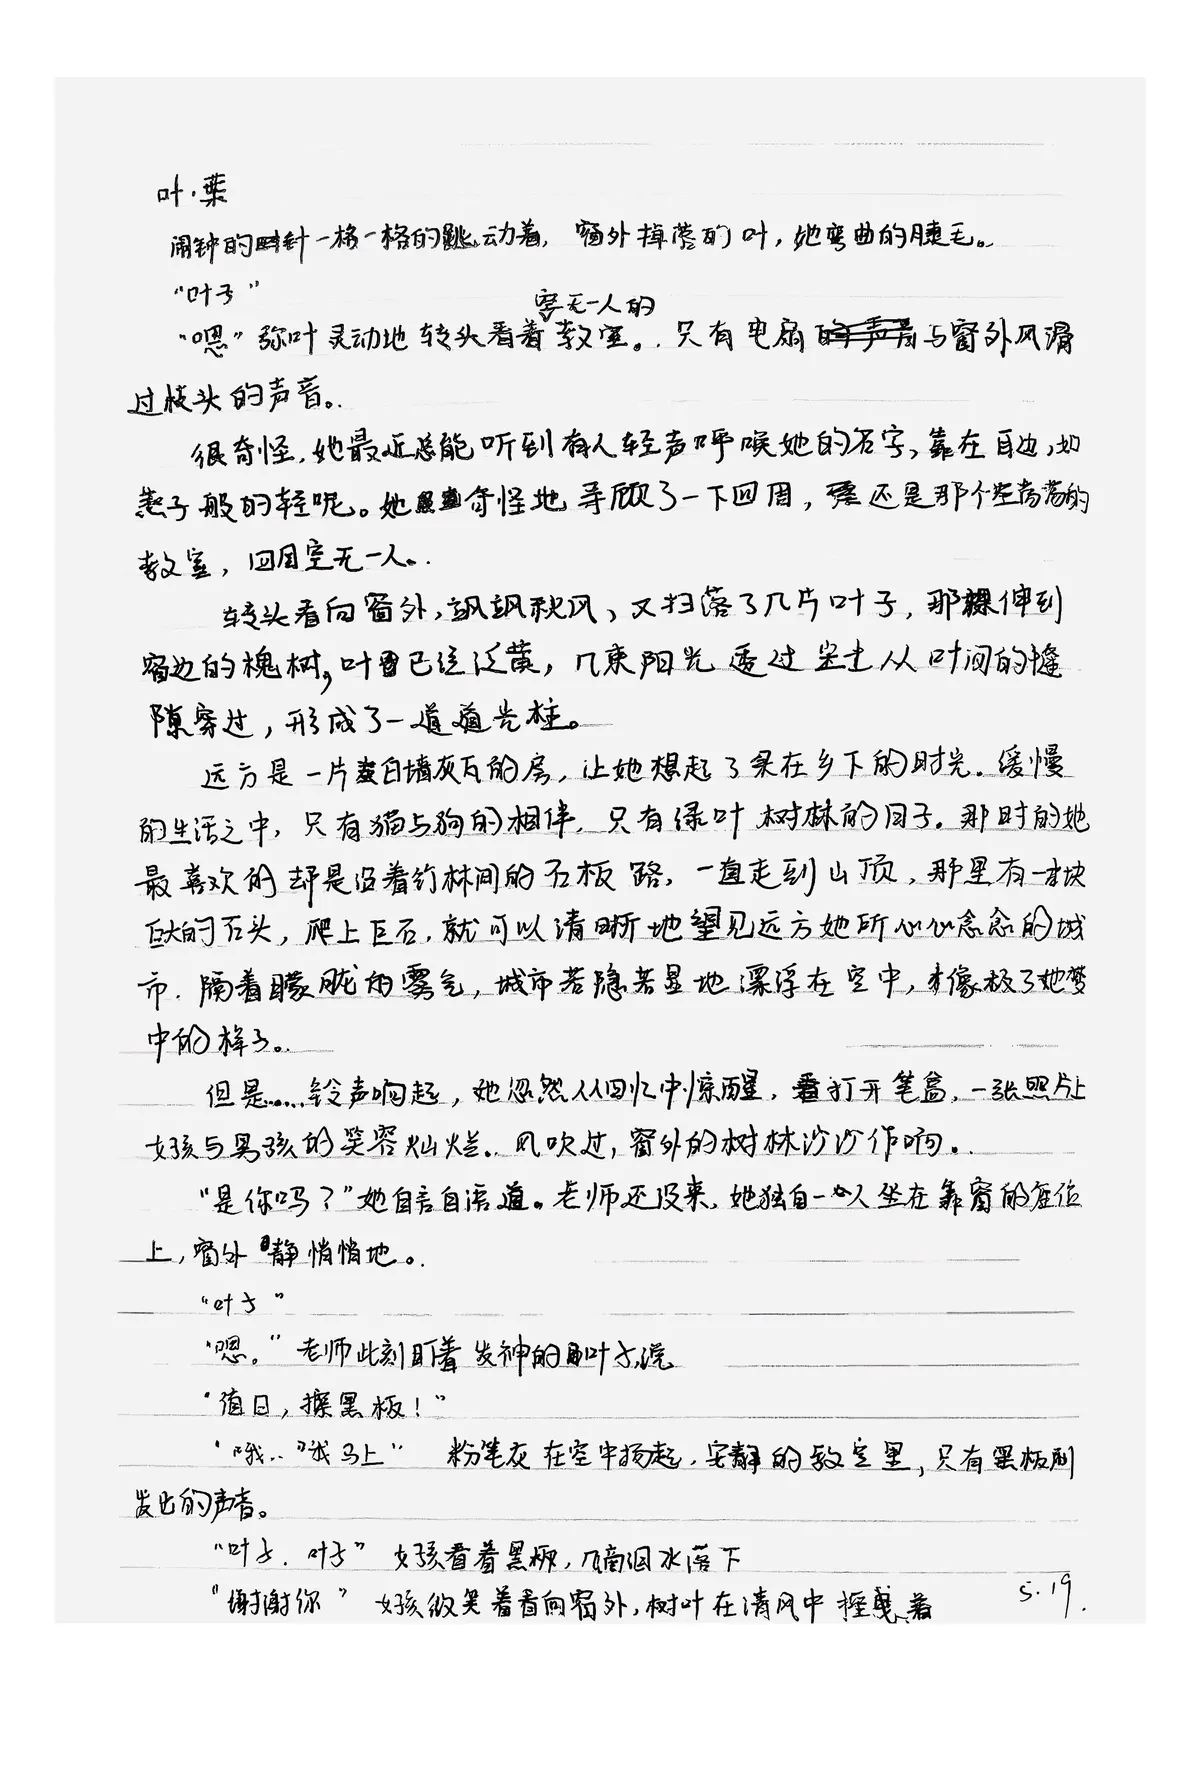 叶·葉
闹钟的时针一格一格的跳动着,窗外掉落的叶,她弯曲的睫毛。
“叶子”
空无一人的
“嗯”弥叶灵动地转头看着教室。只有电扇与窗外风滑
过枝头的声音。
很奇怪,她最近总能听到有人轻声呼唤她的名字,靠在耳边,如
燕子般的轻呢。她奇怪地寻顾了一下四周,还是那个空荡荡的
教室,四周空无一人。
转头看向窗外,飒飒秋风,又扫落了几片叶子,那棵伸到
窗边的槐树,叶已经泛黄,几束阳光透过尘土从叶间的缝
隙穿过,形成了一道道光柱。
远方是一片白墙灰瓦的房,让她想起了呆在乡下的时光。缓慢
的生活之中,只有猫与狗的相伴,只有绿叶树林的日子。那时的她
最喜欢的却是沿着竹林间的石板路,一直走到山顶,那里有一块
巨大的石头,爬上巨石,就可以清晰地望见远方她所心心念念的城
市.隔着朦胧的雾气,城市若隐若显地漂浮在空中,才像极了她梦
中的样子。
但是……铃声响起,她忽然从回忆中惊醒,打开笔盒,一张照片上
女孩与男孩的笑容灿烂。风吹过,窗外的树林沙沙作响。
“是你吗?”她自言自语道。老师还没来,她独自一人坐在靠窗的座位
上,窗外静悄悄地。
“叶子”
“嗯。”老师此刻盯着发神的叶子说
“值日,擦黑板!”
“哦..”“我马上” 粉笔灰在空中扬起,安静的教室里,只有黑板刷
发出的声音。
“叶子.叶子” 女孩看着黑板,几滴泪水落下
“谢谢你” 女孩微笑着看向窗外,树叶在清风中摇曳着
5.19.